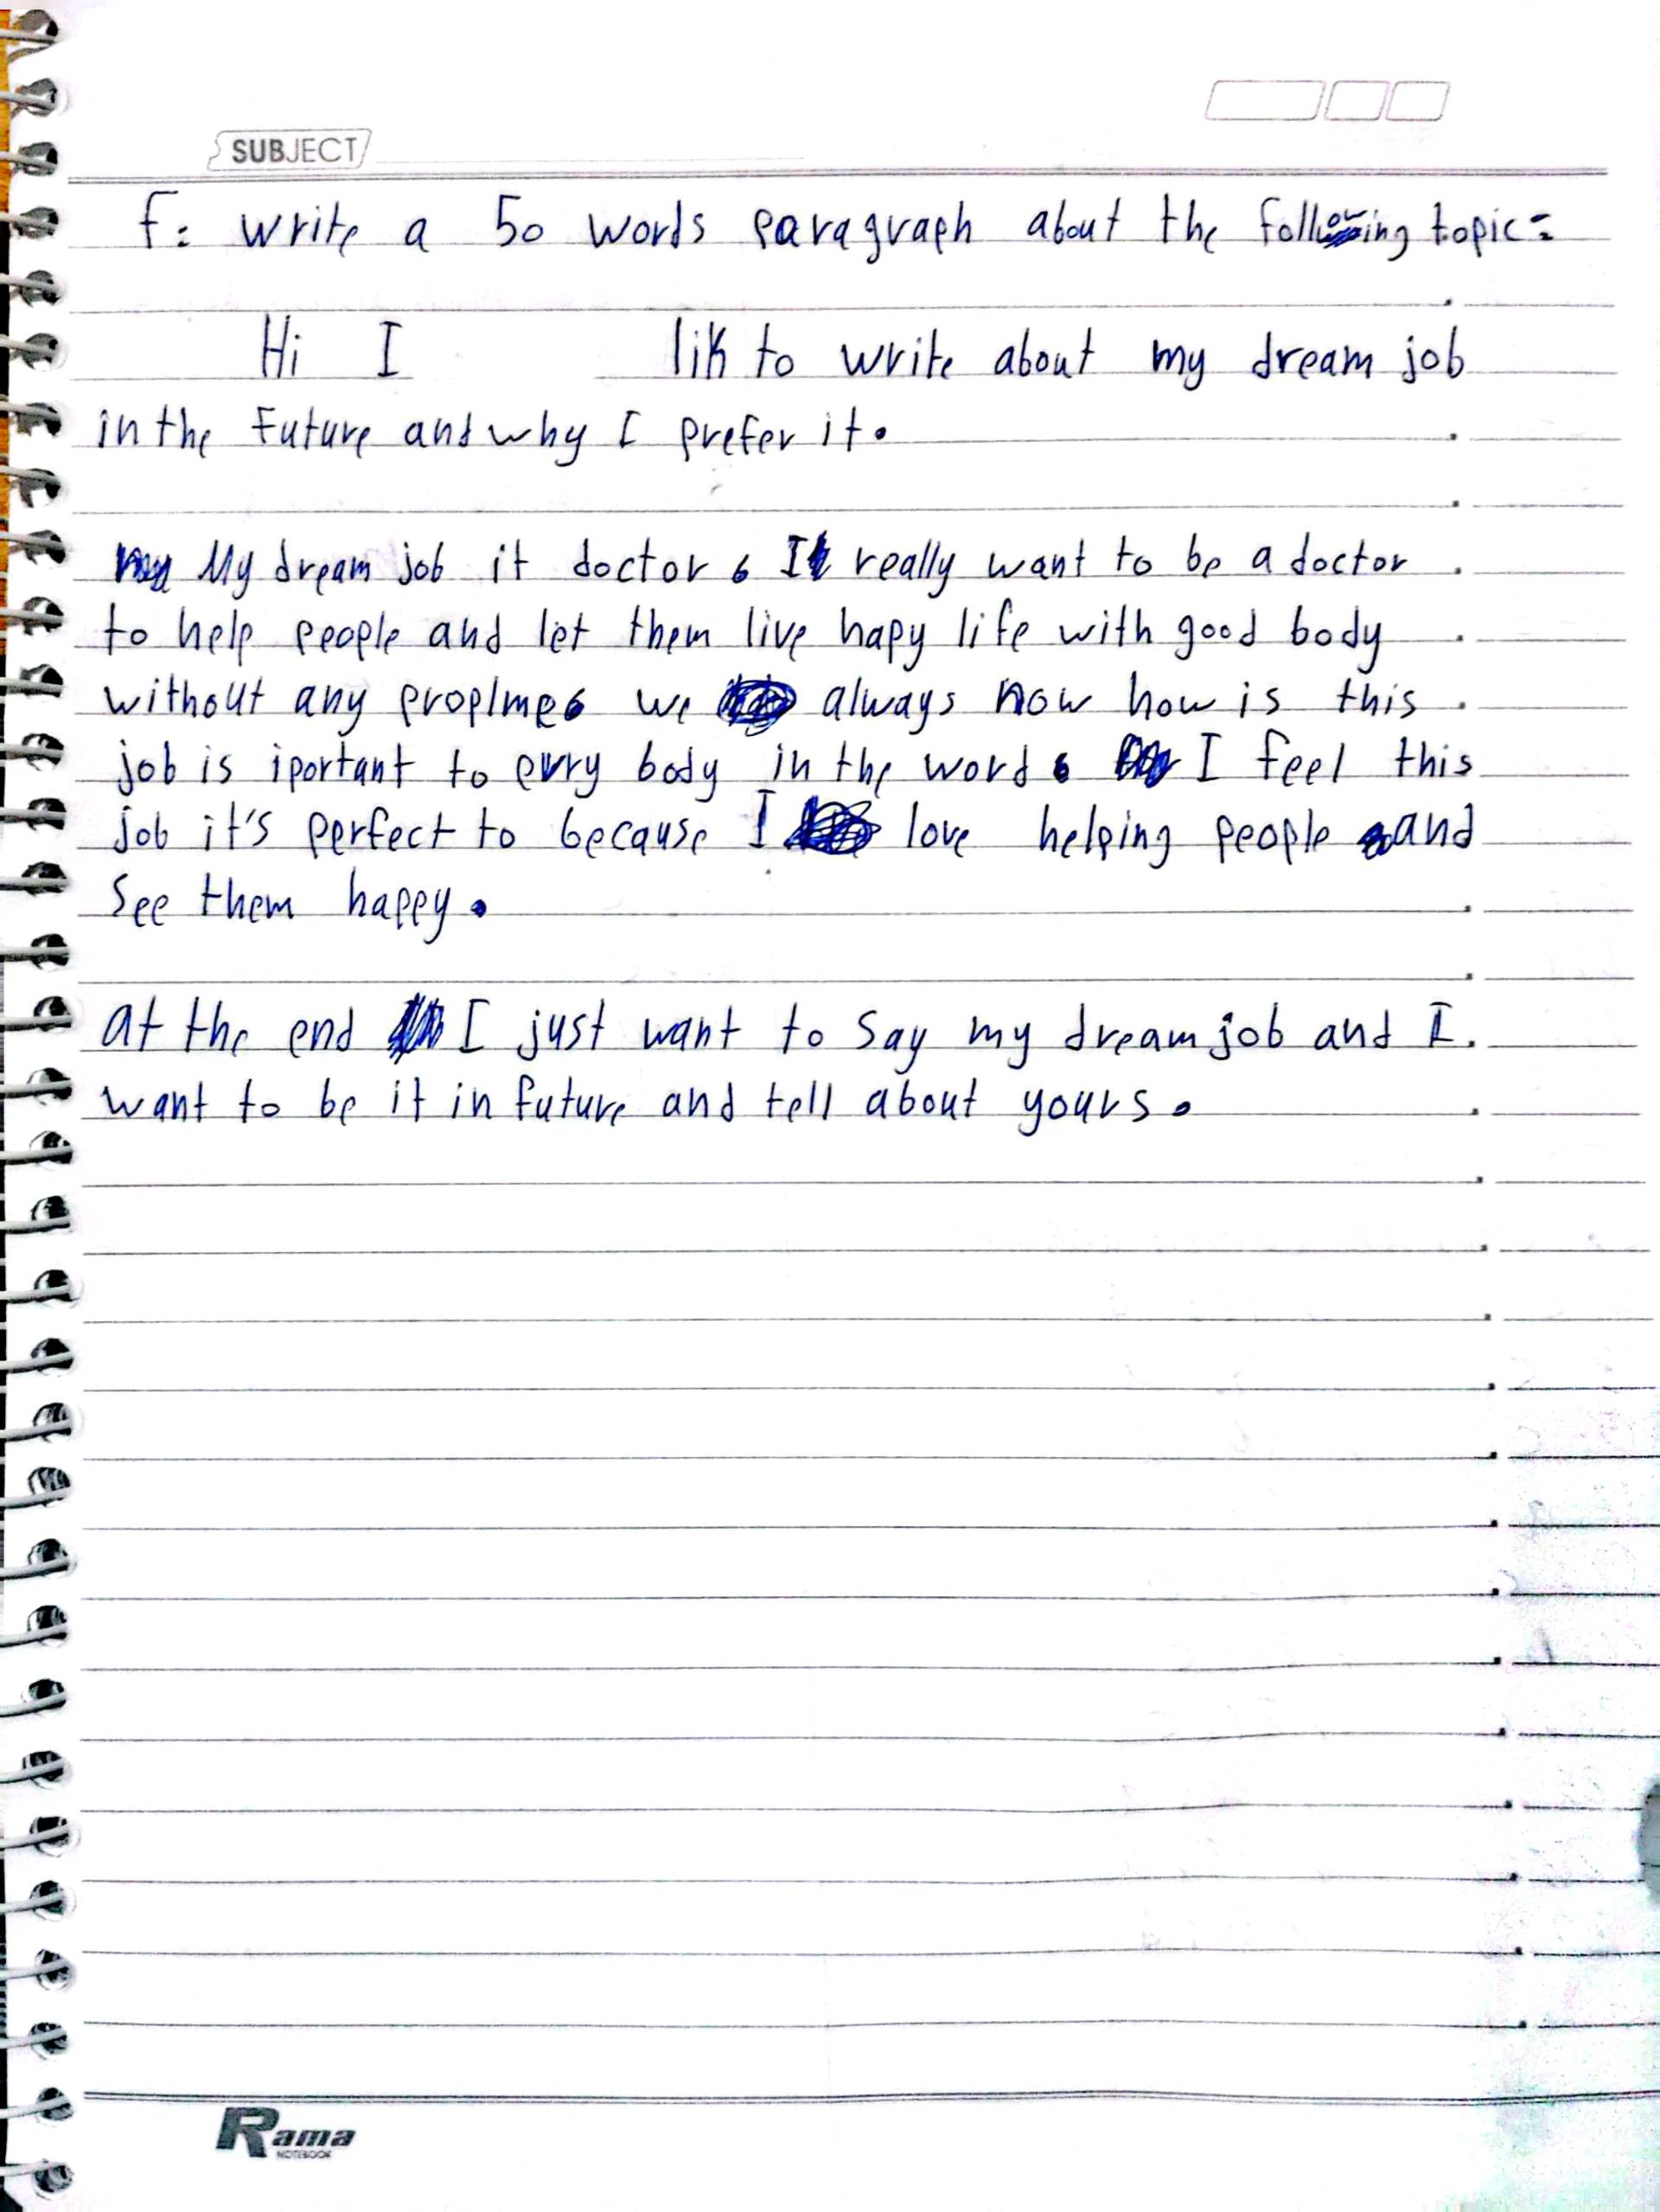 SUBJECT
F: write a 50 words paragraph about the following topic:
Hi I lik to write about my dream job
in the Future and why I prefer it.
My dream job it doctor , I really want to be a doctor
to help people and let them live hapy life with good body
without any proplmes we always now how is this
job is iportant to evry body in the word , I feel this
job it's perfect to because I love helping people and
see them happy.
at the end I just want to say my dream job and I
want to be it in future and tell about yours.
Rama
NOTEBOOK